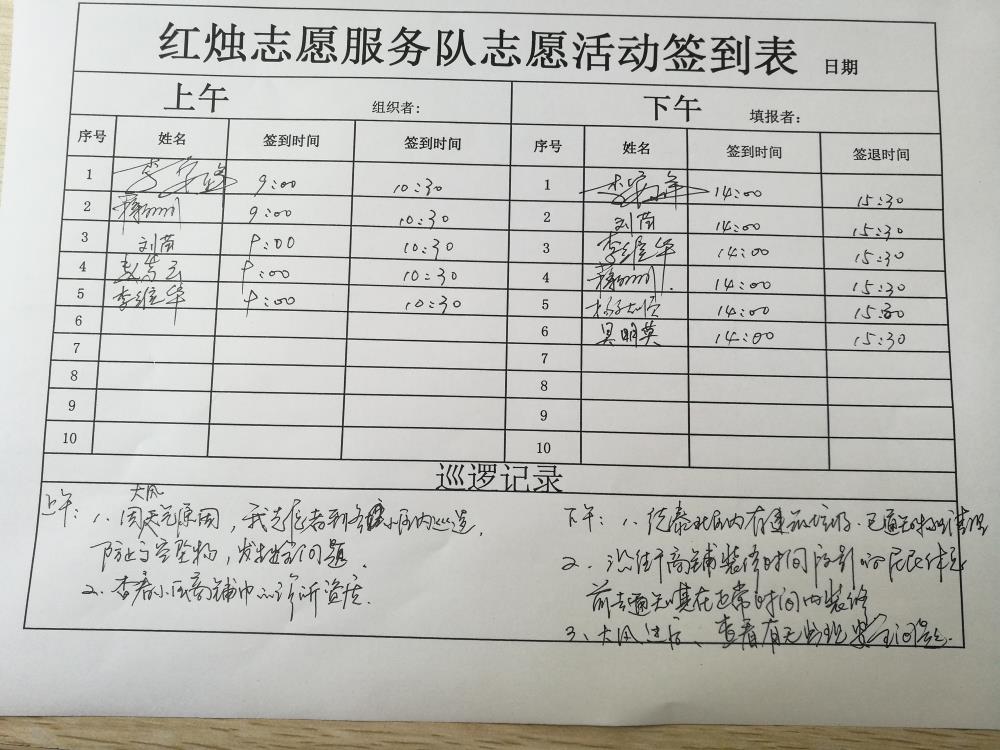 红烛志愿服务队志愿活动签到表 日期
上午 组织者: 下午 填报者:
序号 姓名 签到时间 签到时间 序号 姓名 签到时间 签退时间
1 9:00 10:30 1 14:00 15:30
2 9:00 10:30 2 刘苗 14:00 15:30
3 刘苗 9:00 10:30 3 李维华 14:00 15:30
4 9:00 10:30 4 14:00 15:30
5 李维华 9:00 10:30 5 14:00 15:30
6 6 吴明英 14:00 15:30
7 7
8 8
9 9
10 10
巡逻记录
上午: 1、因大风天气原因, 我志愿者到各小区内巡逻,
防止高空坠物, 发生安全问题.
2、查看小区商铺中的诊所资质.
下午: 1、 北区内有建筑垃圾. 已通知物业清理
2、沿街商铺装修时间
前去通知其在正常时间内装修
3、大风过后、查看有无出现安全问题.